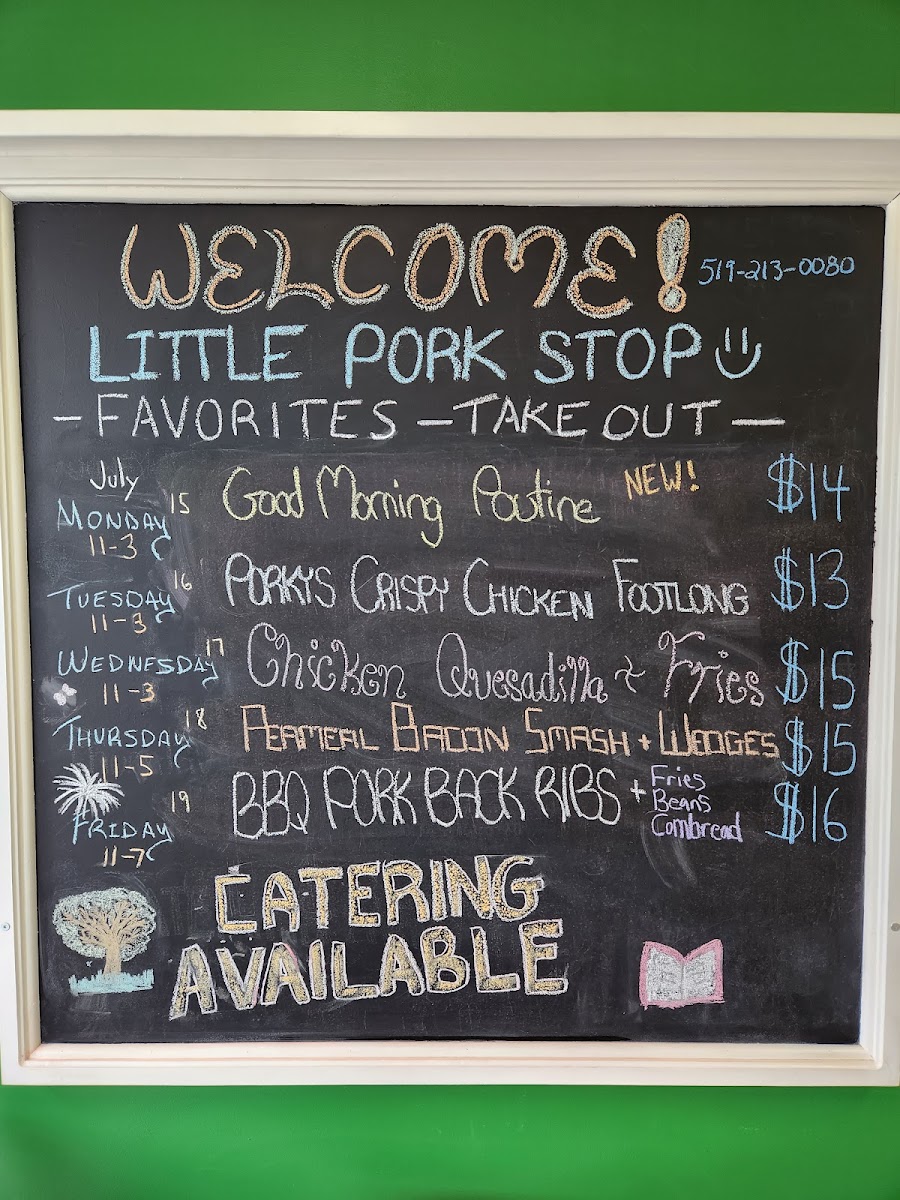 WELCOME! 519-213-0080
LITTLE PORK STOP
- FAVORITES - TAKE OUT -
July
MONDAY 15 Good Morning Poutine NEW! $14
11-3
TUESDAY 16 PORKYS CRISPY CHICKEN FOOTLONG $13
11-3
WEDNESDAY 17 Chicken Quesadilla & Fries $15
11-3
THURSDAY 18 PEAMEAL BACON SMASH + WEDGES $15
11-5
FRIDAY 19 BBQ PORK BACK RIBS + Fries $16
Beans
Cornbread
11-7
CATERING
AVAILABLE